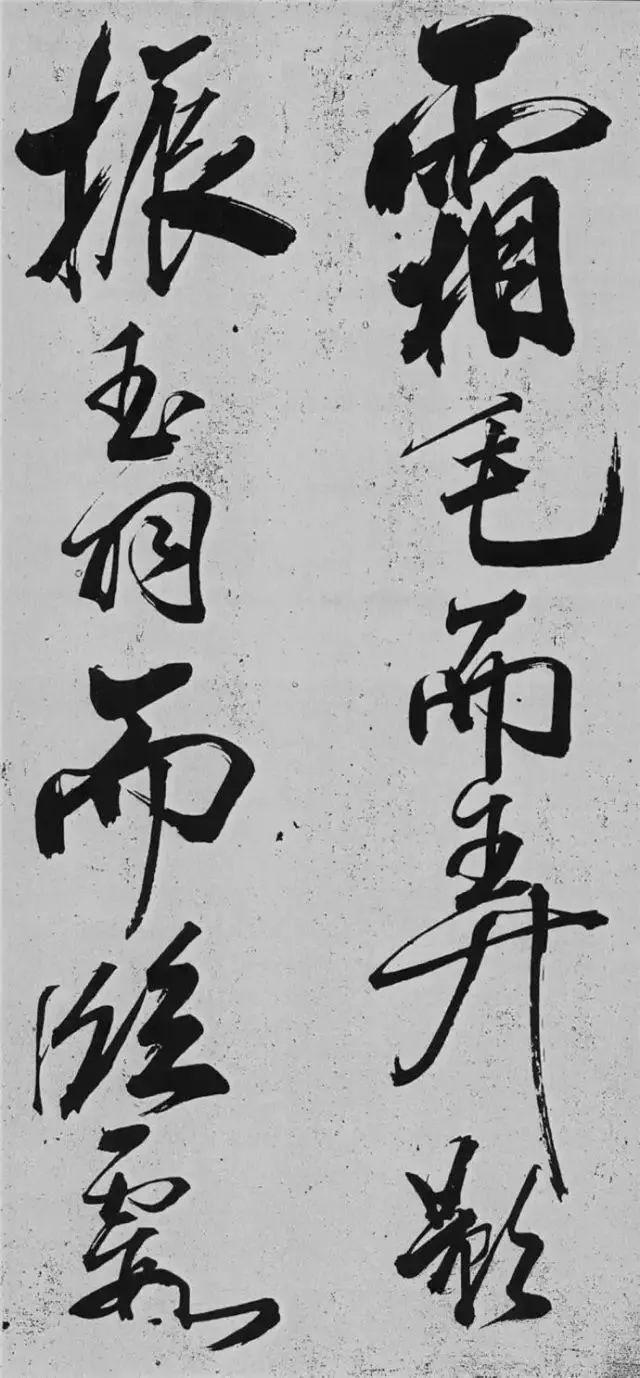 霜毛而弄影
振玉羽而臨霞